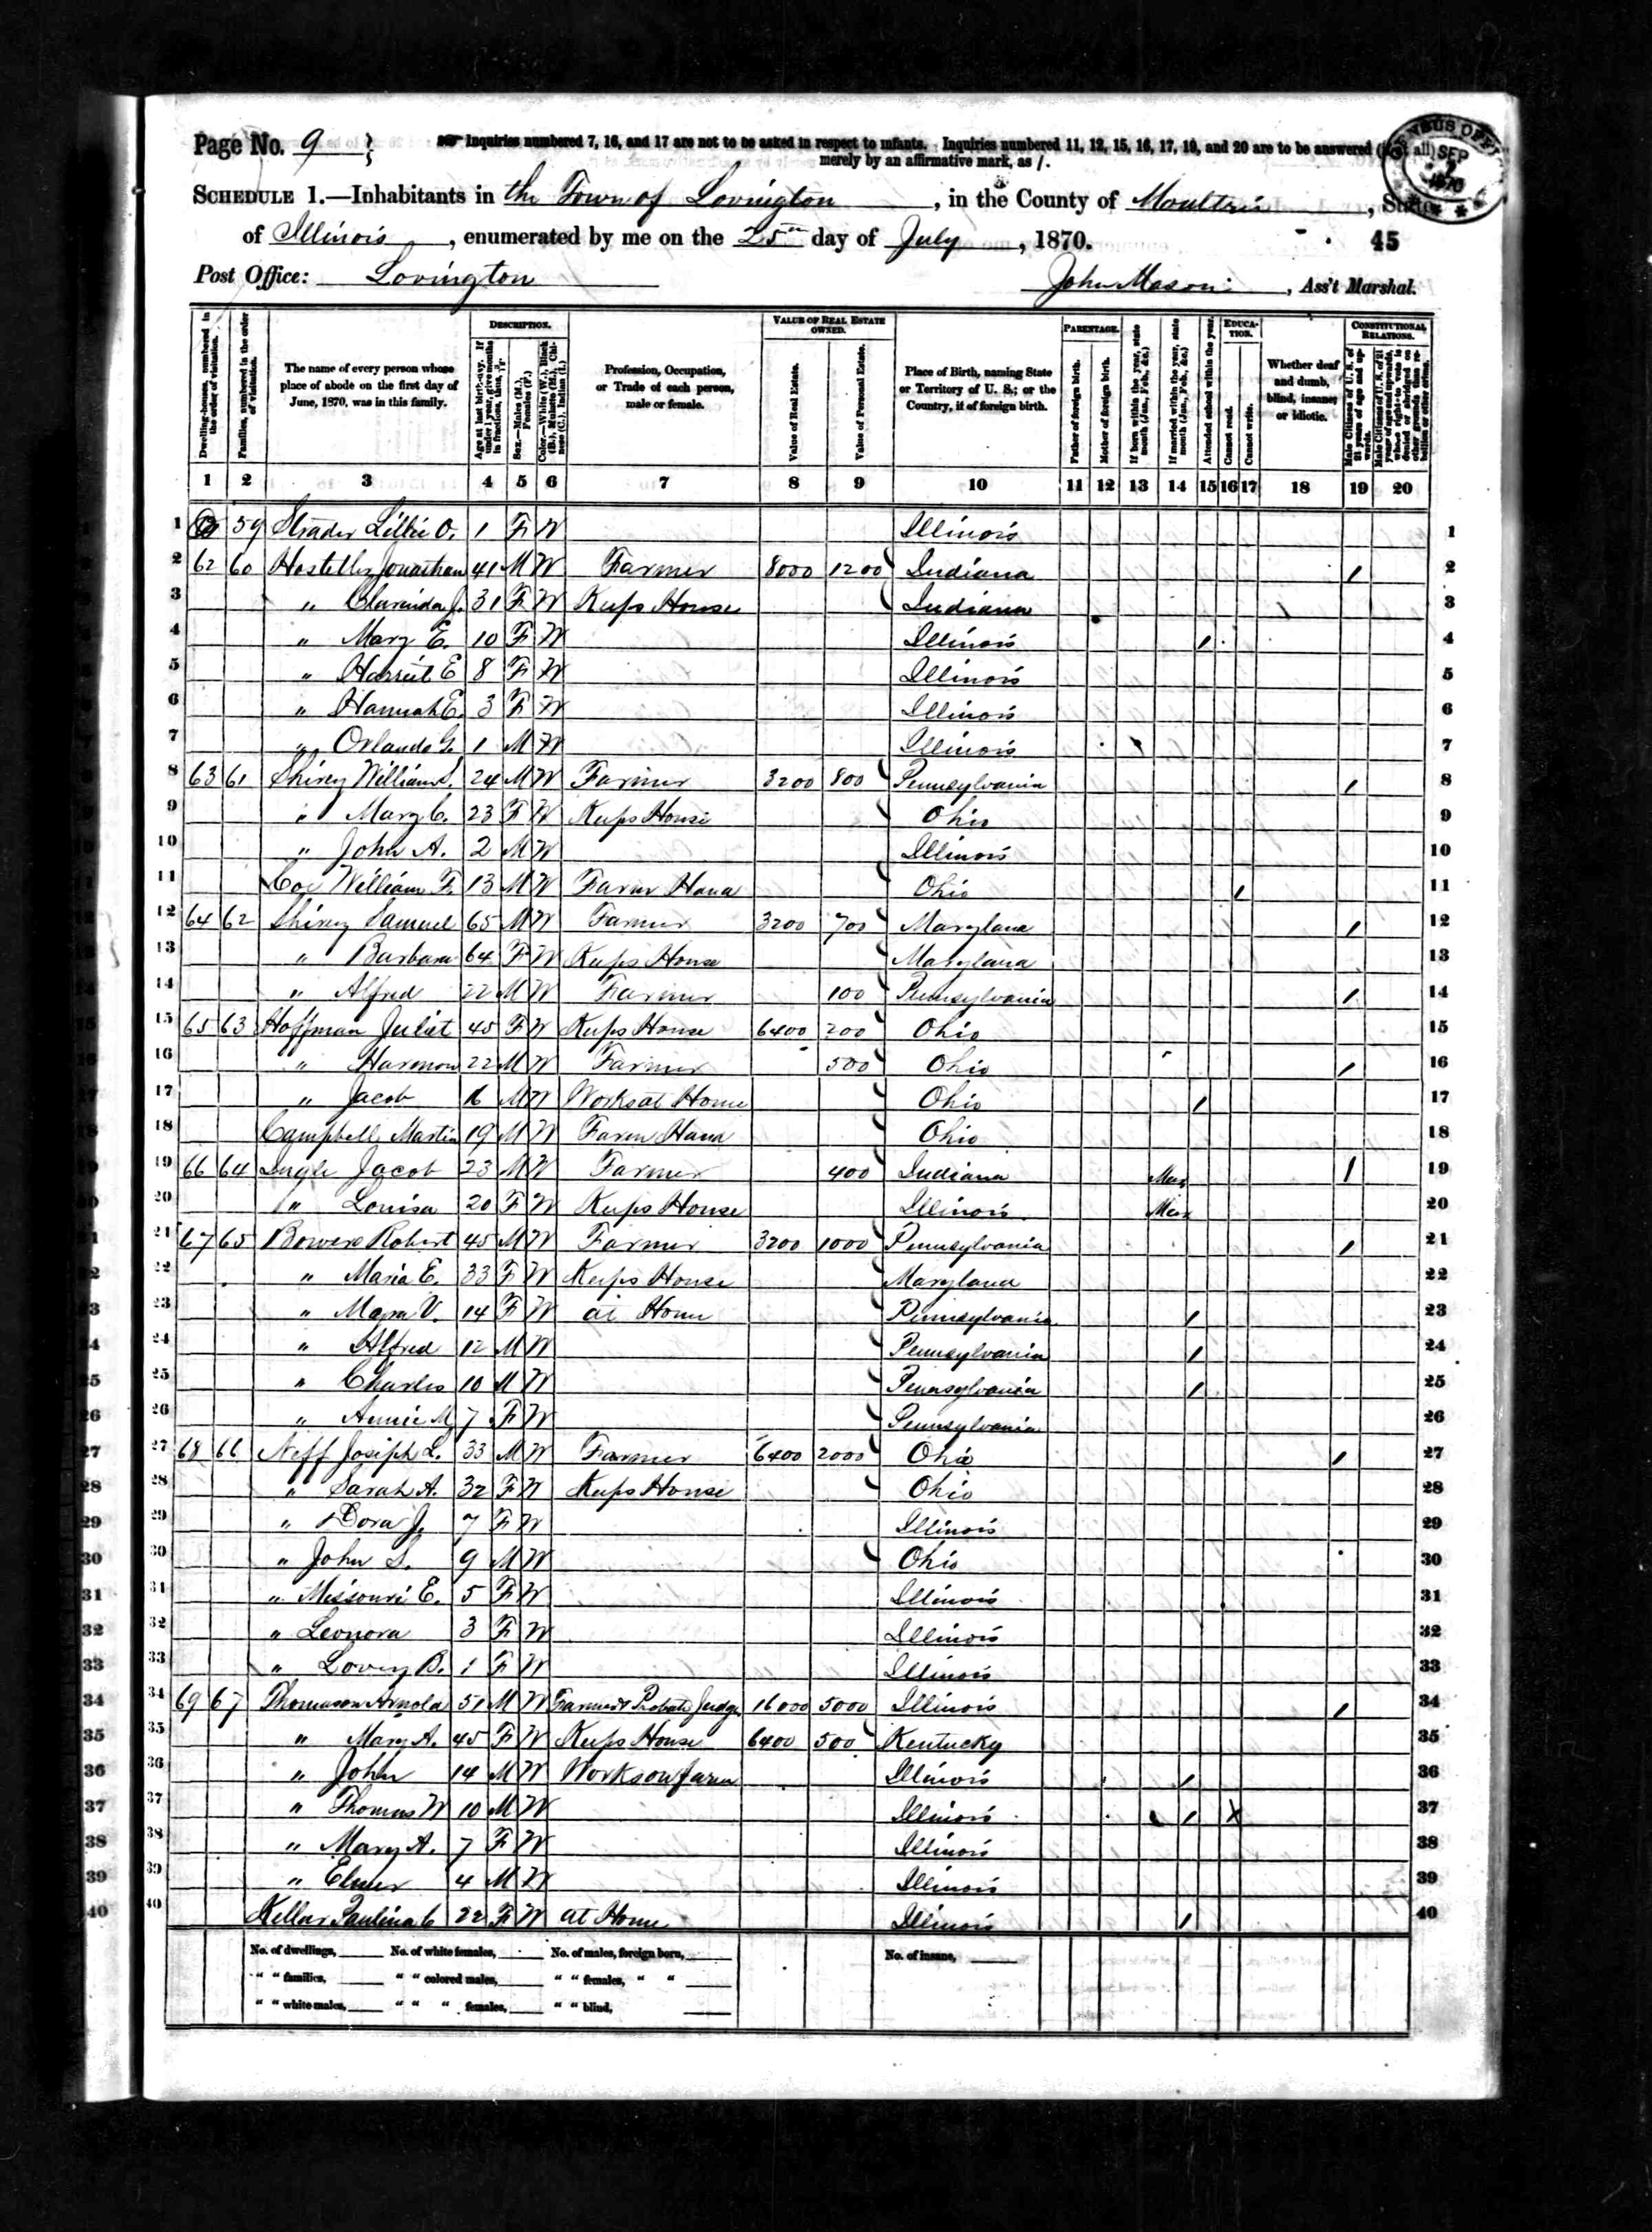 Page No. 9
Inquiries numbered 7, 16, and 17 are not to be asked in respect to infants. Inquiries numbered 11, 12, 15, 16, 17, 19, and 20 are to be answered (if at all)
merely by an affirmative mark, as /.
SCHEDULE 1.—Inhabitants in the Town of Lovington, in the County of Moultrie, State
of Illinois, enumerated by me on the 25th day of July, 1870.
45
Post Office: Lovington
John Mason, Ass't Marshal.
SEP 1870
Dwelling-houses, numbered in the order of visitation.
Families, numbered in the order of visitation.
The name of every person whose place of abode on the first day of June, 1870, was in this family.
DESCRIPTION.
Age at last birth-day. If under 1 year, give months in fractions, thus,
Sex.—Males (M.), Females (F.)
Color.—White (W.), Black (B.), Mulatto (M.), Chinese (C.), Indian (I.)
Profession, Occupation, or Trade of each person, male or female.
VALUE OF REAL ESTATE OWNED.
Value of Real Estate.
Value of Personal Estate.
Place of Birth, naming State or Territory of U. S.; or the Country, if of foreign birth.
PARENTAGE.
Father of foreign birth.
Mother of foreign birth.
If born within the year, state month (Jan., Feb., &c.)
If married within the year, state month (Jan., Feb., &c.)
Attended school within the year.
EDUCATION.
Cannot read.
Cannot write.
Whether deaf and dumb, blind, insane, or idiotic.
CONSTITUTIONAL RELATIONS.
Male Citizens of U. S. of 21 years of age and upwards.
Male Citizens of U. S. of 21 years of age and upwards, whose right to vote is denied or abridged on other grounds than rebellion or other crime.
1 2 3 4 5 6 7 8 9 10 11 12 13 14 15 16 17 18 19 20
1 59 Strader Lillie O. 1 F W Illinois 1
2 62 60 Hostetler Jonathan 41 M W Farmer 8000 1200 Indiana / 2
3 " Clarinda J. 31 F W Keeps House Indiana 3
4 " Mary E. 10 F W Illinois / 4
5 " Harriet E 8 F W Illinois 5
6 " Hannah E. 3 F W Illinois 6
7 " Orlando G. 1 M W Illinois 7
8 63 61 Shirey William S. 24 M W Farmer 3200 800 Pennsylvania / 8
9 " Mary C. 23 F W Keeps House Ohio 9
10 " John A. 2 M W Illinois 10
11 Coe William F. 13 M W Farm Hand Ohio / 11
12 64 62 Shirey Samuel 65 M W Farmer 3200 700 Maryland / 12
13 " Barbara 64 F W Keeps House Maryland 13
14 " Alfred 22 M W Farmer 100 Pennsylvania / 14
15 65 63 Hoffman Juliet 45 F W Keeps House 6400 200 Ohio 15
16 " Harmon 22 M W Farmer 500 Ohio / 16
17 " Jacob 16 M W Works at Home Ohio / 17
18 Campbell Martin 19 M W Farm Hand Ohio 18
19 66 64 Ingle Jacob 23 M W Farmer 400 Indiana / 19
20 " Louisa 20 F W Keeps House Illinois 20
21 67 65 Bowers Robert 45 M W Farmer 3200 1000 Pennsylvania / 21
22 " Maria E. 33 F W Keeps House Maryland 22
23 " V. 14 F W at Home Pennsylvania / 23
24 " Alfred 12 M W Pennsylvania / 24
25 " Charles 10 M W Pennsylvania / 25
26 " Annie M. 7 F W Pennsylvania 26
27 68 66 Neff Joseph L. 33 M W Farmer 6400 2000 Ohio / 27
28 " Sarah A. 32 F W Keeps House Ohio 28
29 " Dora J. 7 F W Illinois 29
30 " John S. 9 M W Ohio 30
31 " Missouri E. 5 F W Illinois 31
32 " Leonora 3 F W Illinois 32
33 " B. 1 F W Illinois 33
34 69 67 Thomason Arnold 51 M W Farmer & Probate Judge 16000 5000 Illinois / 34
35 " Mary A. 45 F W Keeps House 6400 500 Kentucky 35
36 " John 14 M W Works on farm Illinois / 36
37 " Thomas W 10 M W Illinois / X 37
38 " Mary A. 7 F W Illinois 38
39 " Elmer 4 M W Illinois 39
40 Kellar Paulina C 22 F W at Home Illinois / 40
No. of dwellings, No. of white females, No. of males, foreign born, No. of insane,
" " families, " " colored males, " " females, " "
" " white males, " " " females, " " blind,